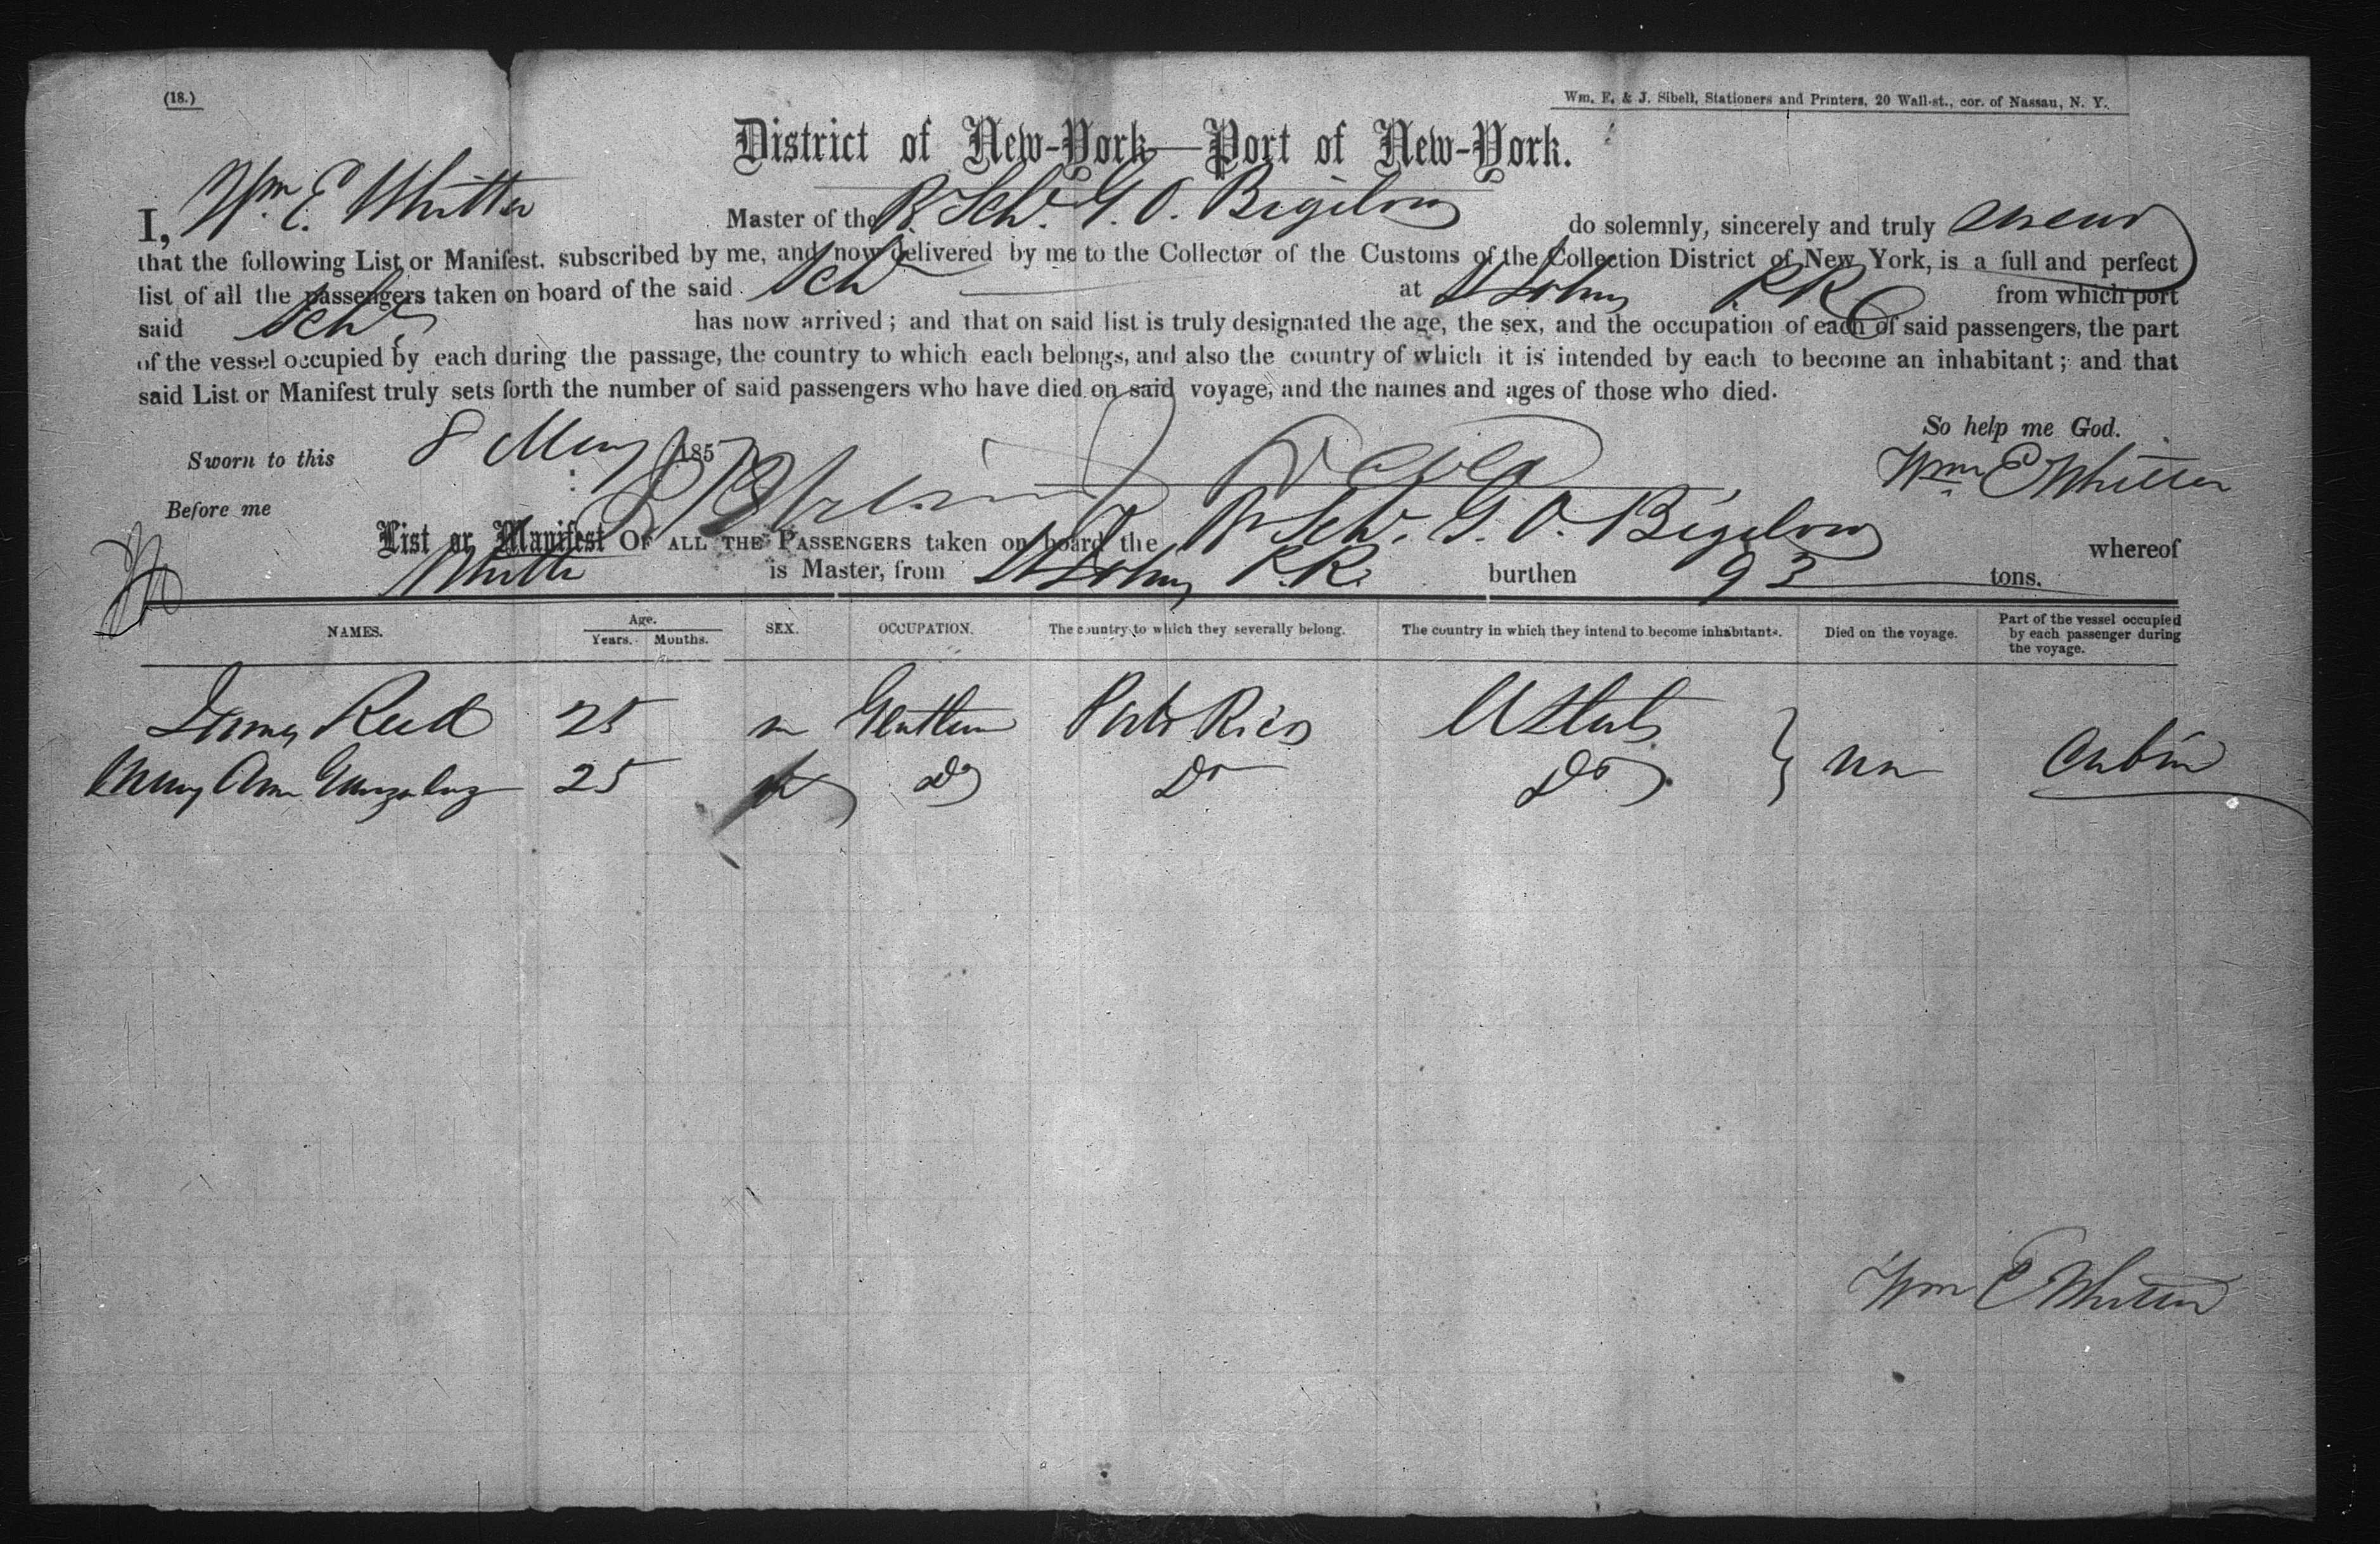 (18.)
Wm. E. & J. Sibell, Stationers and Printers, 20 Wall-st., cor. of Nassau, N. Y.
District of New-York—Port of New-York.
I, Wm E. Whitten Master of the Br Schr. G. O. Bigelow do solemnly, sincerely and truly swear
that the following List or Manifest, subscribed by me, and now delivered by me to the Collector of the Customs of the Collection District of New York, is a full and perfect
list of all the passengers taken on board of the said Schr at St Johns P.R. from which port
said Schr has now arrived; and that on said list is truly designated the age, the sex, and the occupation of each of said passengers, the part
of the vessel occupied by each during the passage, the country to which each belongs, and also the country of which it is intended by each to become an inhabitant; and that
said List or Manifest truly sets forth the number of said passengers who have died on said voyage, and the names and ages of those who died.
So help me God.
Sworn to this 8 May 1857
Wm E Whitten
Before me
List or Manifest OF ALL THE PASSENGERS taken on board the Br Schr. G. O. Bigelow whereof
Whitten is Master, from St Johns P.R. burthen 93 tons.
NAMES. Age. Years. Months. SEX. OCCUPATION. The country to which they severally belong. The country in which they intend to become inhabitants. Died on the voyage. Part of the vessel occupied by each passenger during the voyage.
James Reed 25 m Gentlem Porto Rico U States
Mary Ann Gonzalez 25 f Do Do Do Cabin
Wm E Whitten